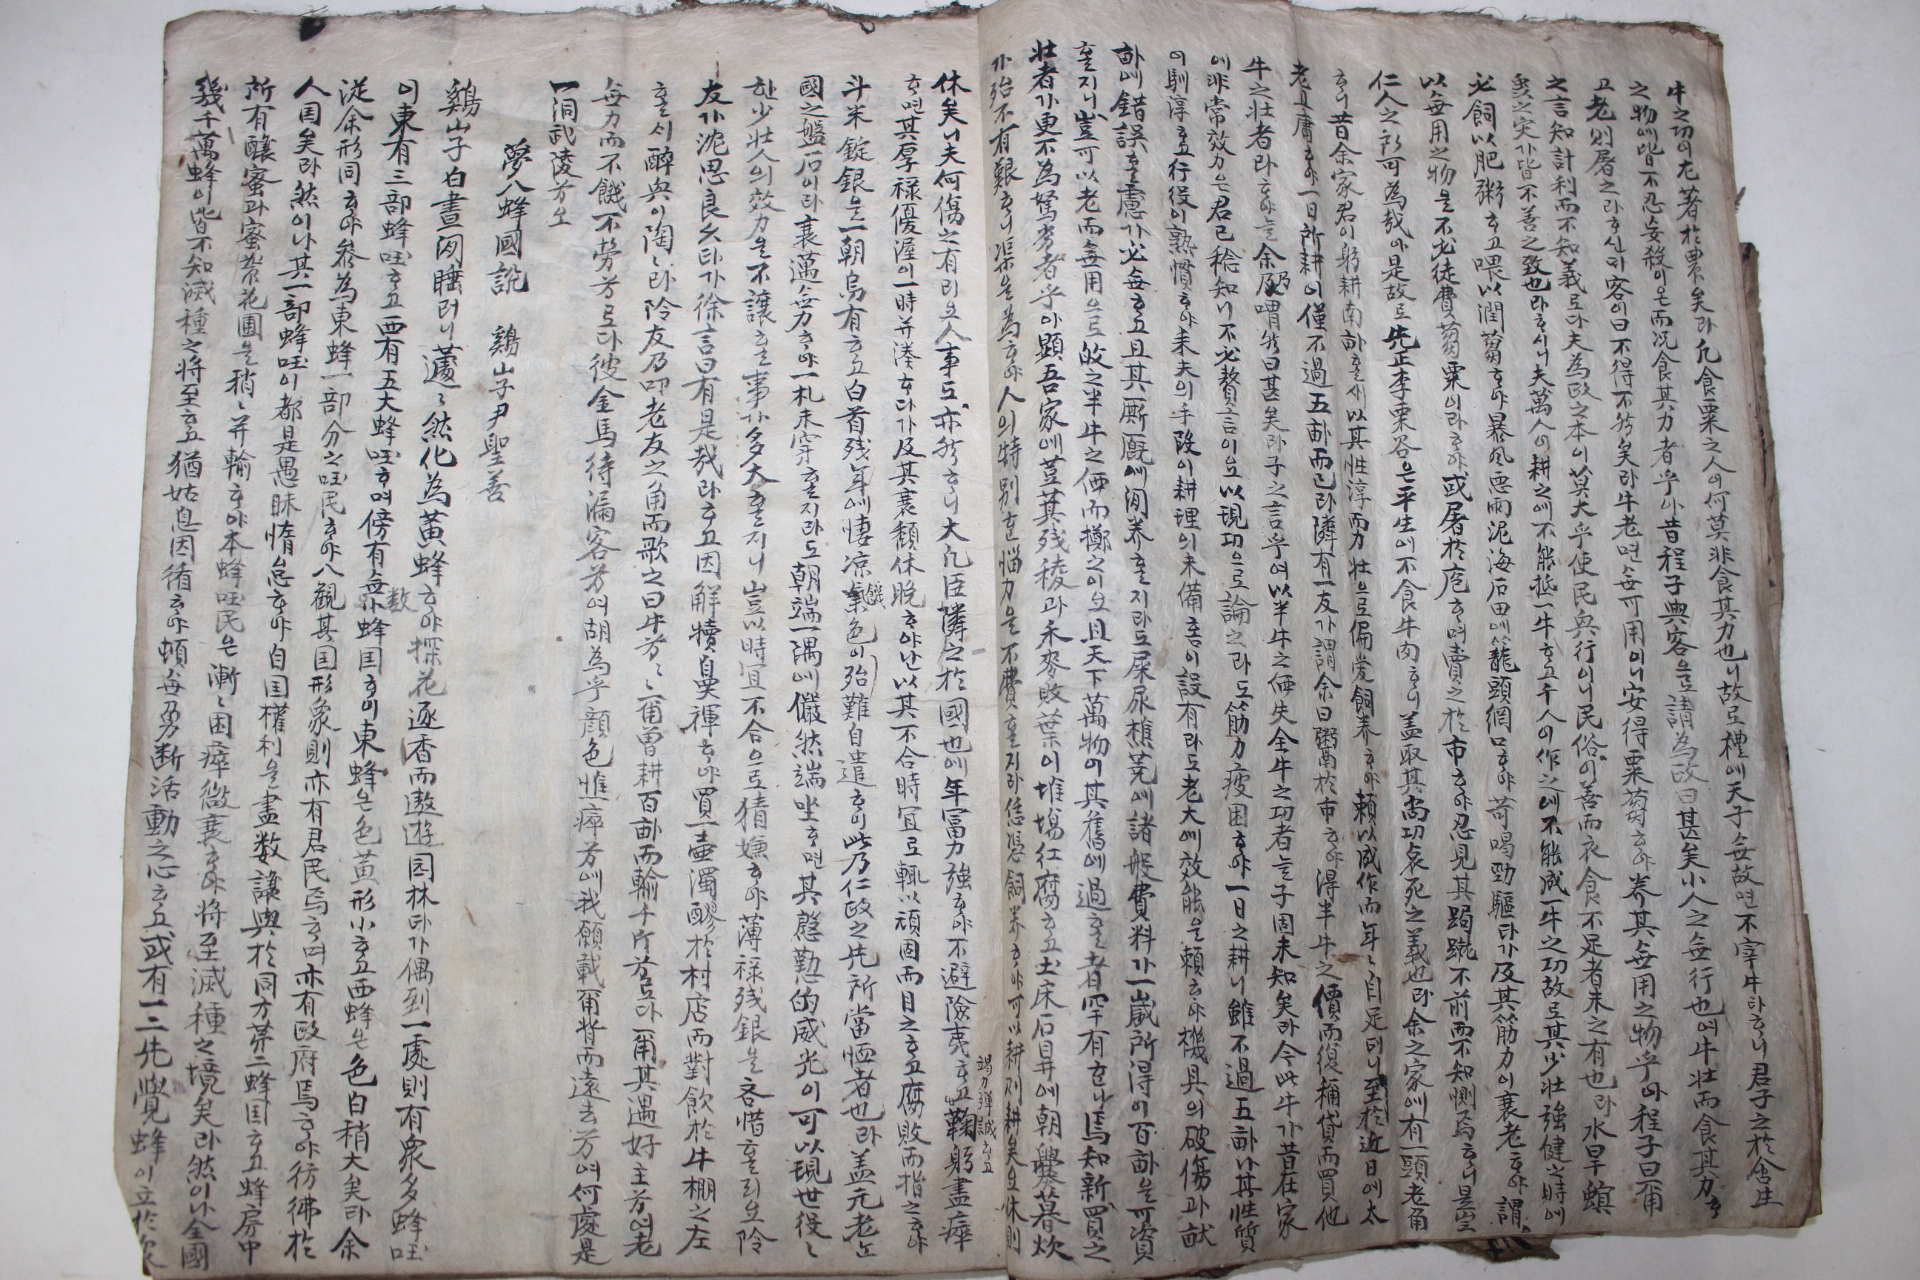 牛之功이尤著於粟矣라凡食粟之人이何莫非食其力也니故로禮에天子無故면不宰牛라하니君子之於含生
之物에皆不忍妄殺이온而况食其力者乎아昔程子與客으로語為政曰甚矣小人之無行也여牛壯而食其力하
고老則屠之라하신ᄃᆡ客이曰不得不然矣라牛老면無可用이니安得粟蒭하야養其無用之物乎아程子曰爾
之言知計利而不知義로다夫為政之本이莫大乎使民興行이니民俗이善而衣食不足者未之有也라水旱螟
蝗之灾가皆不善之致也라하시니夫萬人이耕之에不能抵一牛하고千人이作之에不能成一牛之功故로其少壯強健之時에
必飼以肥粥하고喂以潤蒭하야暴風惡雨泥海石田에籠頭網口하야苛喝勁驅타가及其筋力이衰老하야謂
以無用之物은不必徒費蒭粟이라하야或屠於庖하며賣之於市하야忍見其躅躑不前而不知惻焉하니是豈
仁人之所可為哉아是故로先正李栗谷은平生에不食牛肉하니盖取其尚功哀死之義也라余之家에有一頭老角
하니昔余家君이躬耕南하실새以其性淳而力壯으로偏愛飼养하야賴以成作而年年自足터니至於近日에太
老且庸하야一日所耕이僅不過五畝而已라隣有一友가謂余曰鬻於市하야得半牛之價而復稱貸而買他
牛之壯者라하야늘余乃喟然曰甚矣라子之言乎여以半牛之価失全牛之功者는子固未知矣라今此牛가昔在家
에非常效力은君已稔知니不必贅言이오以現功으로論之라도筋力疲困하야一日之耕이雖不過五畝나其性質
이馴淳하고行役이熟慣하야耒夫의手段이耕理의未備홈이設有라도老大에效能을賴하야機具의破傷과畎
畝에錯誤할慮가必無하고且其一廐에閒养할지라도屎尿樵荛에諸般費料가一歲所得이百畝을可資
할지니豈可以老而無用으로故之半牛之価而擲之이오且天下萬物이其舊에過할者罕有하니焉知新買之
壯者가更不為駑劣者乎아顧吾家에豈其残稜과禾麥敗葉이堆場红腐하고土床石㫷에朝爨暮炊
가殆不有艱하니渠을為하야人의特別한惱力을不費할지라恁憑飼养하야可以耕則耕矣오休則
休矣니夫何傷之有리오人事도亦然하니大凡臣隣之於國也에年富力強하야不避險夷하고鞠躬盡瘁
竭力殫誠하고
하면其厚禄優渥이一時并湊하다가及其衰頹休晩하야난以其不合時宜로輒以頑固而目之하고腐敗而指之하야
斗米錠銀을一朝烏有하고白首残年에悽凉氣色이殆難自遣하이此乃仁政之先所當恤者也라盖元老는
國之盤石이라衰邁無力하야一札未穿할지라도朝端一隅에儼然端坐하면其慇懃的威光이可以現世從之
한少壯人의效力을不讓할事가多大할지니豈以時宜不合으로猜嫌하야薄禄残銀을吝惜하리오於
友가沈思良久타가徐言曰有是哉라하고因解犢鼻褌하야買一壷濁醪於村店而對飲於牛棚之左
할시醉興이陶陶라於友乃叩老友之角而歌之曰牛兮牛兮爾曾耕百畝而輸千斤兮로다爾其遇好主兮여老
無力而不餓不勞兮로다彼金馬待漏客兮여胡為乎顔色憔瘁兮에我願載爾背而遠去兮여何處是
一洞武陵兮오
夢入蜂國說 鷄山子尹聖善
鷄山子白晝閒睡러니蘧蘧然化為黃蜂하야探花逐香而遨遊园林타가偶到一處則有衆多蜂呸
이東有三部蜂呸하고西有五大蜂呸하며傍有無数小蜂国하이東蜂은色黃形小하고西蜂은色白稍大矣라余
從余形同하야參為東蜂一部分之呸民하야入觀其国形象則亦有君民焉하며亦有政府焉하야彷彿於
人国矣라然이나其一部蜂呸이都是愚昧惰怠하야自国權利을盡数讓與於同方第二蜂国하고蜂房中
所有釀蜜과蜜蒅花圃을稍稍并輸하야本蜂呸民은漸漸困瘁微衰하야將至滅種之境矣라然이나全國
幾千萬蜂이皆不知滅種之将至하고猶姑息因循하야頓無勇断活動之心하고或有一二先覺蜂이立於衆